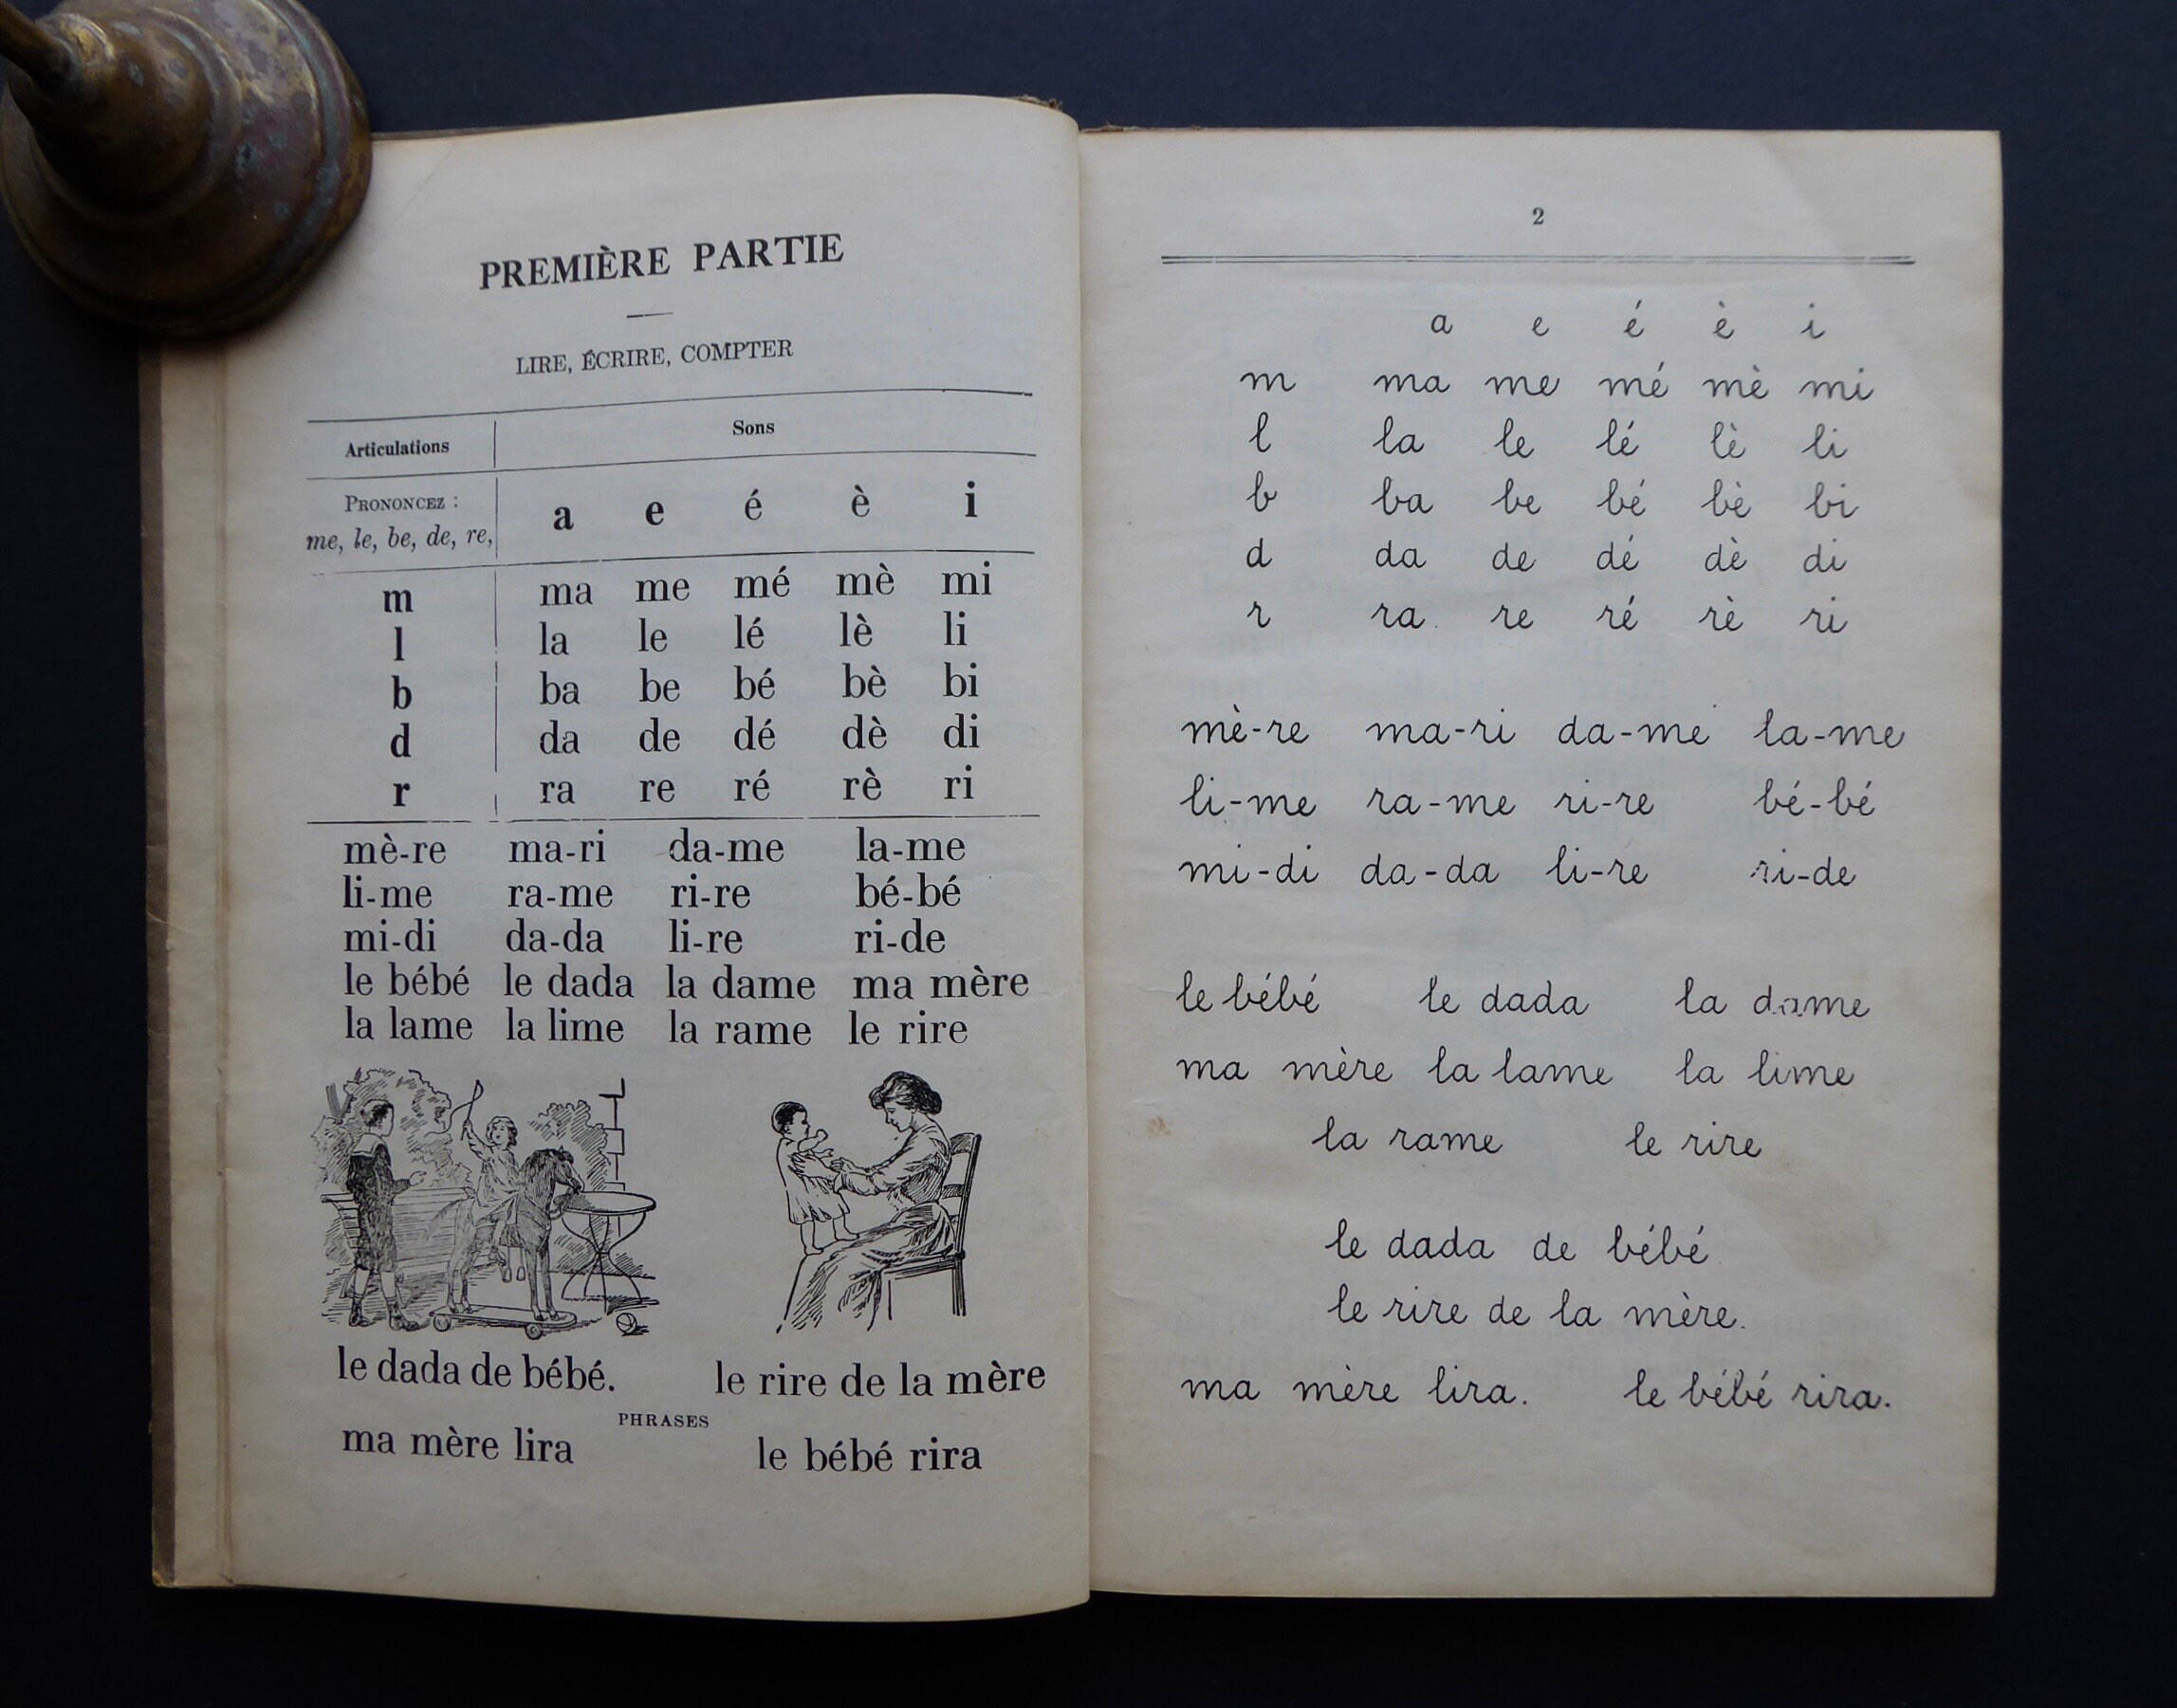 PREMIÈRE PARTIE
LIRE, ÉCRIRE, COMPTER
Articulations Sons
PRONONCEZ :
me, le, be, de, re, a e é è i
m ma me mé mè mi
l la le lé lè li
b ba be bé bè bi
d da de dé dè di
r ra re ré rè ri
mè-re ma-ri da-me la-me
li-me ra-me ri-re bé-bé
mi-di da-da li-re ri-de
le bébé le dada la dame ma mère
la lame la lime la rame le rire
le dada de bébé. le rire de la mère
PHRASES
ma mère lira le bébé rira
2
a e é è i
m ma me mé mè mi
l la le lé lè li
b ba be bé bè bi
d da de dé dè di
r ra re ré rè ri
mè-re ma-ri da-me la-me
li-me ra-me ri-re bé-bé
mi-di da-da li-re ri-de
le bébé le dada la dame
ma mère la lame la lime
la rame le rire
le dada de bébé
le rire de la mère.
ma mère lira. le bébé rira.